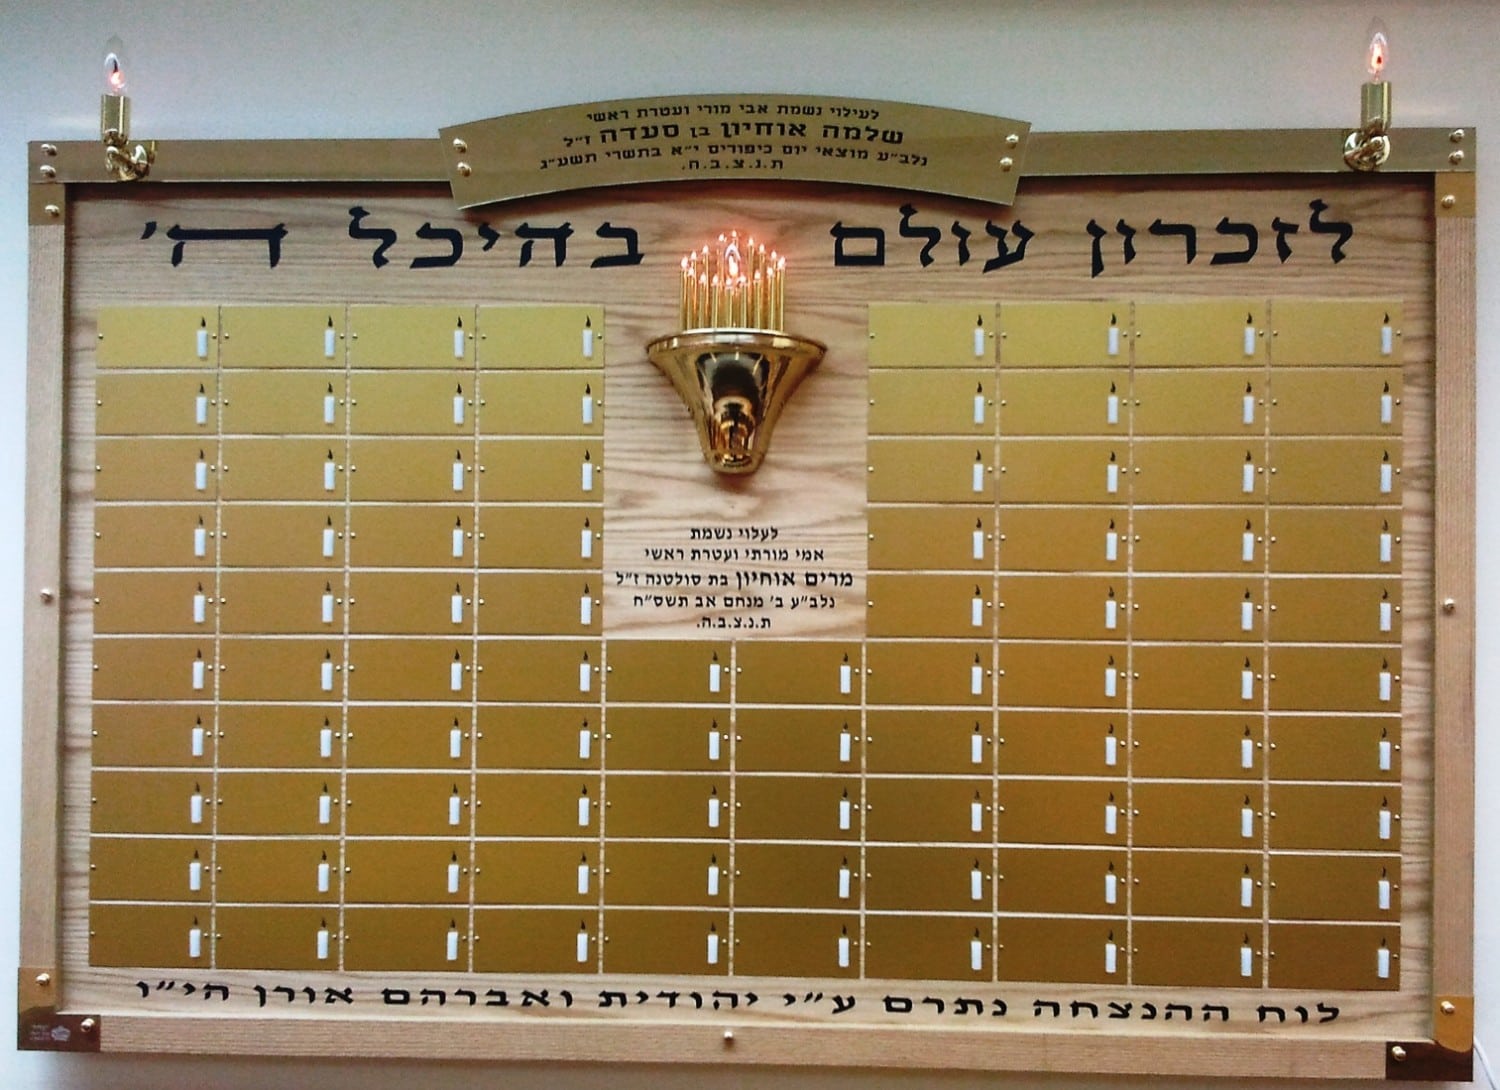 לעילוי נשמת אבי מורי ועטרת ראשי
שלמה אוחיון בן סעדה ז"ל
נלב"ע מוצאי יום כיפורים י"א בתשרי תשע"ג
ת.נ.צ.ב.ה.
לזכרון עולם בהיכל ה'
לעלוי נשמת
אמי מורתי ועטרת ראשי
מרים אוחיון בת סולטנה ז"ל
נלב"ע ב' מנחם אב תשס"ח
ת.נ.צ.ב.ה.
לוח ההנצחה נתרם ע"י יהודית ואברהם אורן הי"ו